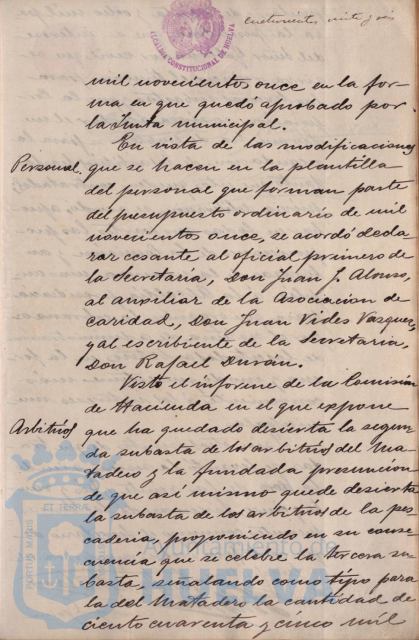 ALCALDIA CONSTITUCIONAL DE HUELVA
cuatrocientos veinte y seis
mil novecientos once en la for-
ma en que quedó aprobado por
la Junta municipal.
En vista de las modificaciones
Personal. que se hacen en la plantilla
del personal que forman parte
del presupuesto ordinario de mil
novecientos once, se acordó decla
rar cesante al oficial primero de
la Secretaría, Don Juan J. Alonso,
al auxiliar de la Asociacion de
caridad, Don Juan Vides Vazquez,
y al escribiente de la Secretaria,
Don Rafael Durán.
Visto el informe de la Comisión
de Hacienda en el que expone
Arbitrios que ha quedado desierta la segun
da subasta de los arbitrios del Ma-
tadero y la fundada presuncion
de que así mismo quede desierta
la subasta de los arbitrios de la pes
caderia, proponiendo en su conse-
cuencia que se celebre la tercera su-
basta, señalando como tipo para
la del Matadero la cantidad de
ciento cuarenta y cinco mil
PORTUS MARIS
ET TERRAE
Ayuntamiento de
HUELVA